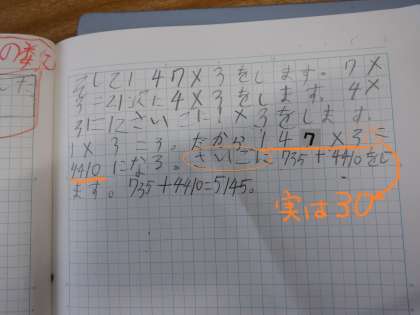 の考え
そして147×3をします。7×
3=21次に4×3をします。4×
3=12さいごに1×3をします。
1×3=3。だから147×3=
4410になる。さいごに735+4410をし
ます。735+4410=5145。
実は30